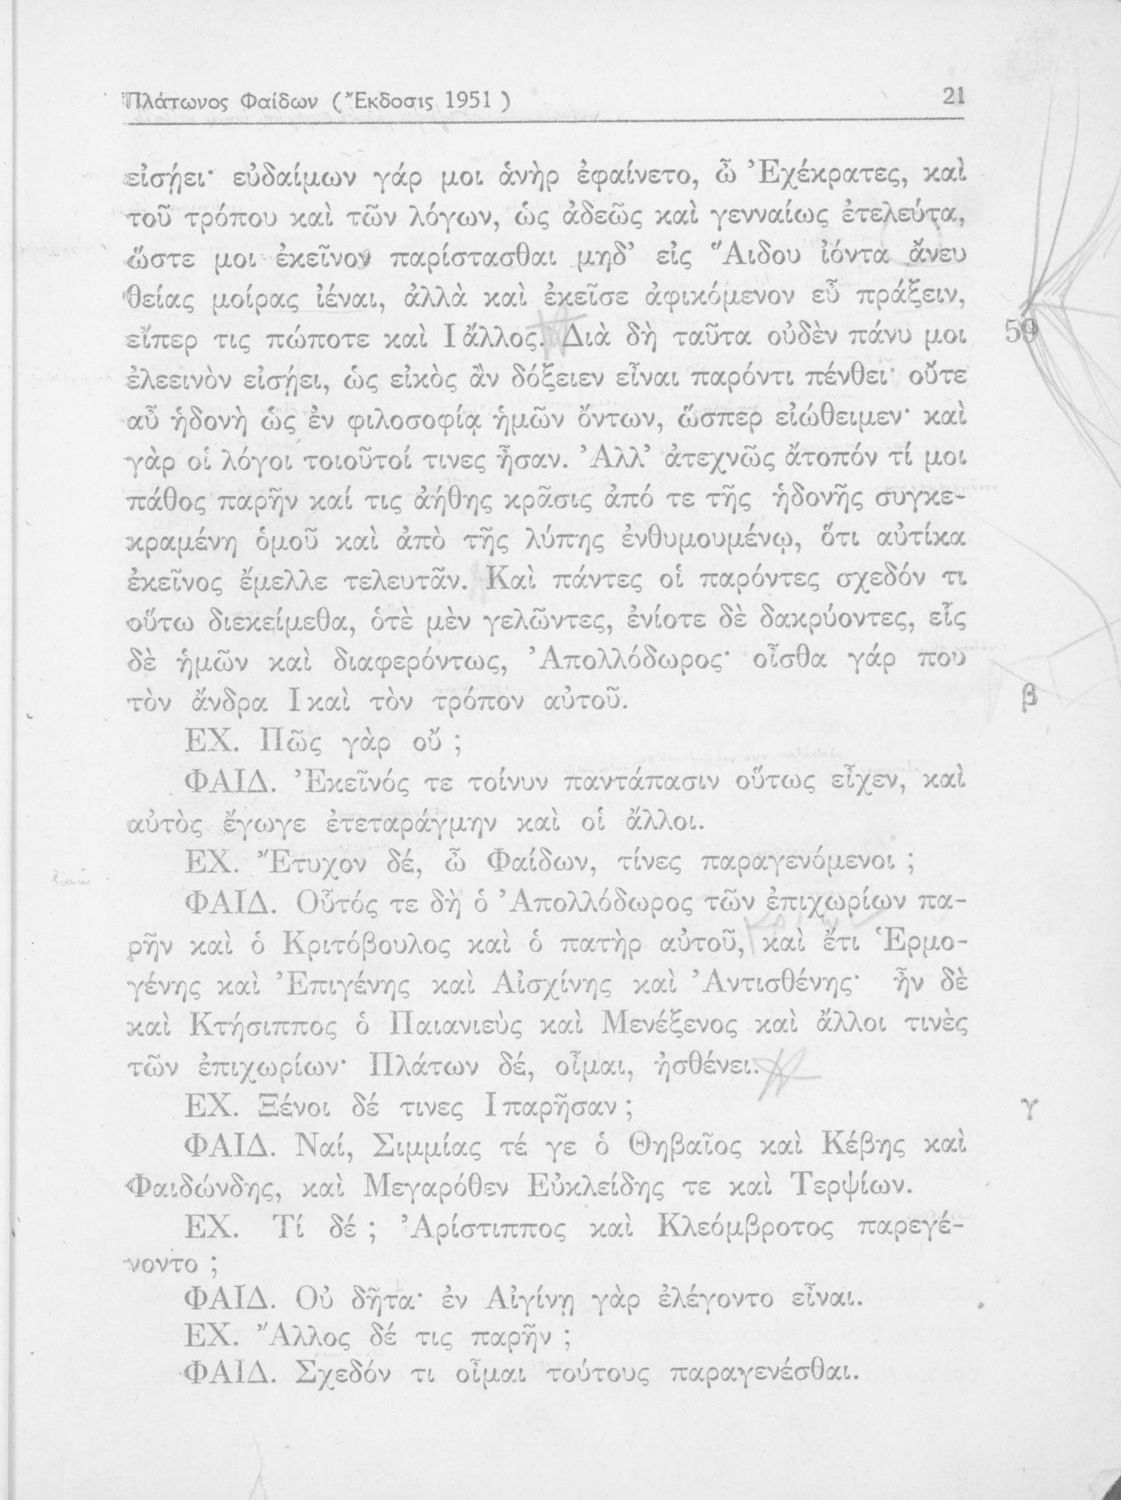 Πλάτωνος Φαίδων (Ἔκδοσις 1951) 21
εἰσῄει· εὐδαίμων γάρ μοι ἁνὴρ ἐφαίνετο, ὦ Ἐχέκρατες, καὶ
τοῦ τρόπου καὶ τῶν λόγων, ὡς ἀδεῶς καὶ γενναίως ἐτελεύτα,
ὥστε μοι ἐκεῖνον παρίστασθαι μηδ’ εἰς Ἅιδου ἰόντα ἄνευ
θείας μοίρας ἰέναι, ἀλλὰ καὶ ἐκεῖσε ἀφικόμενον εὖ πράξειν,
εἴπερ τις πώποτε καὶ Ι ἄλλος. Διὰ δὴ ταῦτα οὐδὲν πάνυ μοι 59
ἐλεεινὸν εἰσῄει, ὡς εἰκὸς ἂν δόξειεν εἶναι παρόντι πένθει· οὔτε
αὖ ἡδονὴ ὡς ἐν φιλοσοφίᾳ ἡμῶν ὄντων, ὥσπερ εἰώθειμεν· καὶ
γὰρ οἱ λόγοι τοιοῦτοί τινες ἦσαν. Ἀλλ’ ἀτεχνῶς ἄτοπόν τί μοι
πάθος παρῆν καί τις ἀήθης κρᾶσις ἀπό τε τῆς ἡδονῆς συγκε-
κραμένη ὁμοῦ καὶ ἀπὸ τῆς λύπης ἐνθυμουμένῳ, ὅτι αὐτίκα
ἐκεῖνος ἔμελλε τελευτᾶν. Καὶ πάντες οἱ παρόντες σχεδόν τι
οὕτω διεκείμεθα, ὁτὲ μὲν γελῶντες, ἐνίοτε δὲ δακρύοντες, εἷς
δὲ ἡμῶν καὶ διαφερόντως, Ἀπολλόδωρος· οἶσθα γάρ που
τὸν ἄνδρα Ι καὶ τὸν τρόπον αὐτοῦ. β
ΕΧ. Πῶς γὰρ οὔ ;
ΦΑΙΔ. Ἐκεῖνός τε τοίνυν παντάπασιν οὕτως εἶχεν, καὶ
αὐτὸς ἔγωγε ἐτεταράγμην καὶ οἱ ἄλλοι.
ΕΧ. Ἔτυχον δέ, ὦ Φαίδων, τίνες παραγενόμενοι ;
ΦΑΙΔ. Οὗτός τε δὴ ὁ Ἀπολλόδωρος τῶν ἐπιχωρίων πα-
ρῆν καὶ ὁ Κριτόβουλος καὶ ὁ πατὴρ αὐτοῦ, καὶ ἔτι Ἑρμο-
γένης καὶ Ἐπιγένης καὶ Αἰσχίνης καὶ Ἀντισθένης· ἦν δὲ
καὶ Κτήσιππος ὁ Παιανιεὺς καὶ Μενέξενος καὶ ἄλλοι τινὲς
τῶν ἐπιχωρίων· Πλάτων δέ, οἶμαι, ἠσθένει.
ΕΧ. Ξένοι δέ τινες Ι παρῆσαν ; γ
ΦΑΙΔ. Ναί, Σιμμίας τέ γε ὁ Θηβαῖος καὶ Κέβης καὶ
Φαιδώνδης, καὶ Μεγαρόθεν Εὐκλείδης τε καὶ Τερψίων.
ΕΧ. Τί δέ ; Ἀρίστιππος καὶ Κλεόμβροτος παρεγέ-
νοντο ;
ΦΑΙΔ. Οὐ δῆτα· ἐν Αἰγίνῃ γὰρ ἐλέγοντο εἶναι.
ΕΧ. Ἄλλος δέ τις παρῆν ;
ΦΑΙΔ. Σχεδόν τι οἶμαι τούτους παραγενέσθαι.